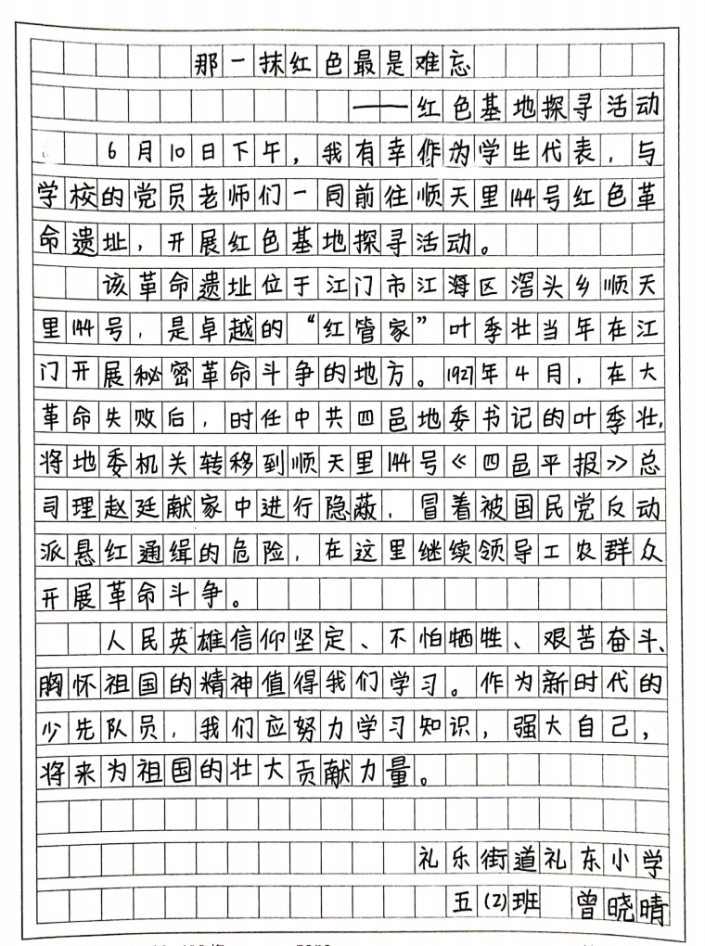 那一抹红色最是难忘
——红色基地探寻活动
6月10日下午，我有幸作为学生代表，与
学校的党员老师们一同前往顺天里144号红色革
命遗址，开展红色基地探寻活动。
该革命遗址位于江门市江海区滘头乡顺天
里144号，是卓越的“红管家”叶季壮当年在江
门开展秘密革命斗争的地方。1927年4月，在大
革命失败后，时任中共四邑地委书记的叶季壮，
将地委机关转移到顺天里144号《四邑平报》总
司理赵廷献家中进行隐蔽，冒着被国民党反动
派悬红通缉的危险，在这里继续领导工农群众
开展革命斗争。
人民英雄信仰坚定、不怕牺牲、艰苦奋斗、
胸怀祖国的精神值得我们学习。作为新时代的
少先队员，我们应努力学习知识，强大自己，
将来为祖国的壮大贡献力量。
礼乐街道礼东小学
五(2)班 曾晓晴